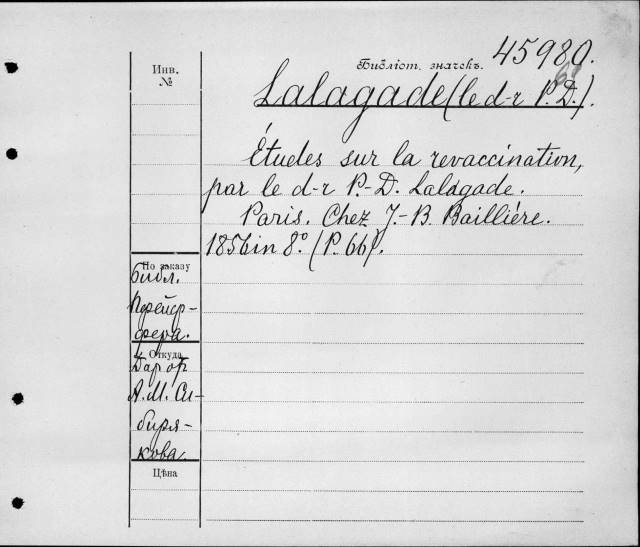 Инв.
№
Библіот. значекъ. 45980.
Lalagade (le d-r P. D.).
Études sur la revaccination,
par le d-r P.-D. Lalagade.
Paris. Chez J.-B. Baillière.
1856 in 8°. (P. 66).
По заказу
Библ.
Пфейф-
фера.
Откуда
Даръ
А. М. Си-
биря-
кова.
Цѣна